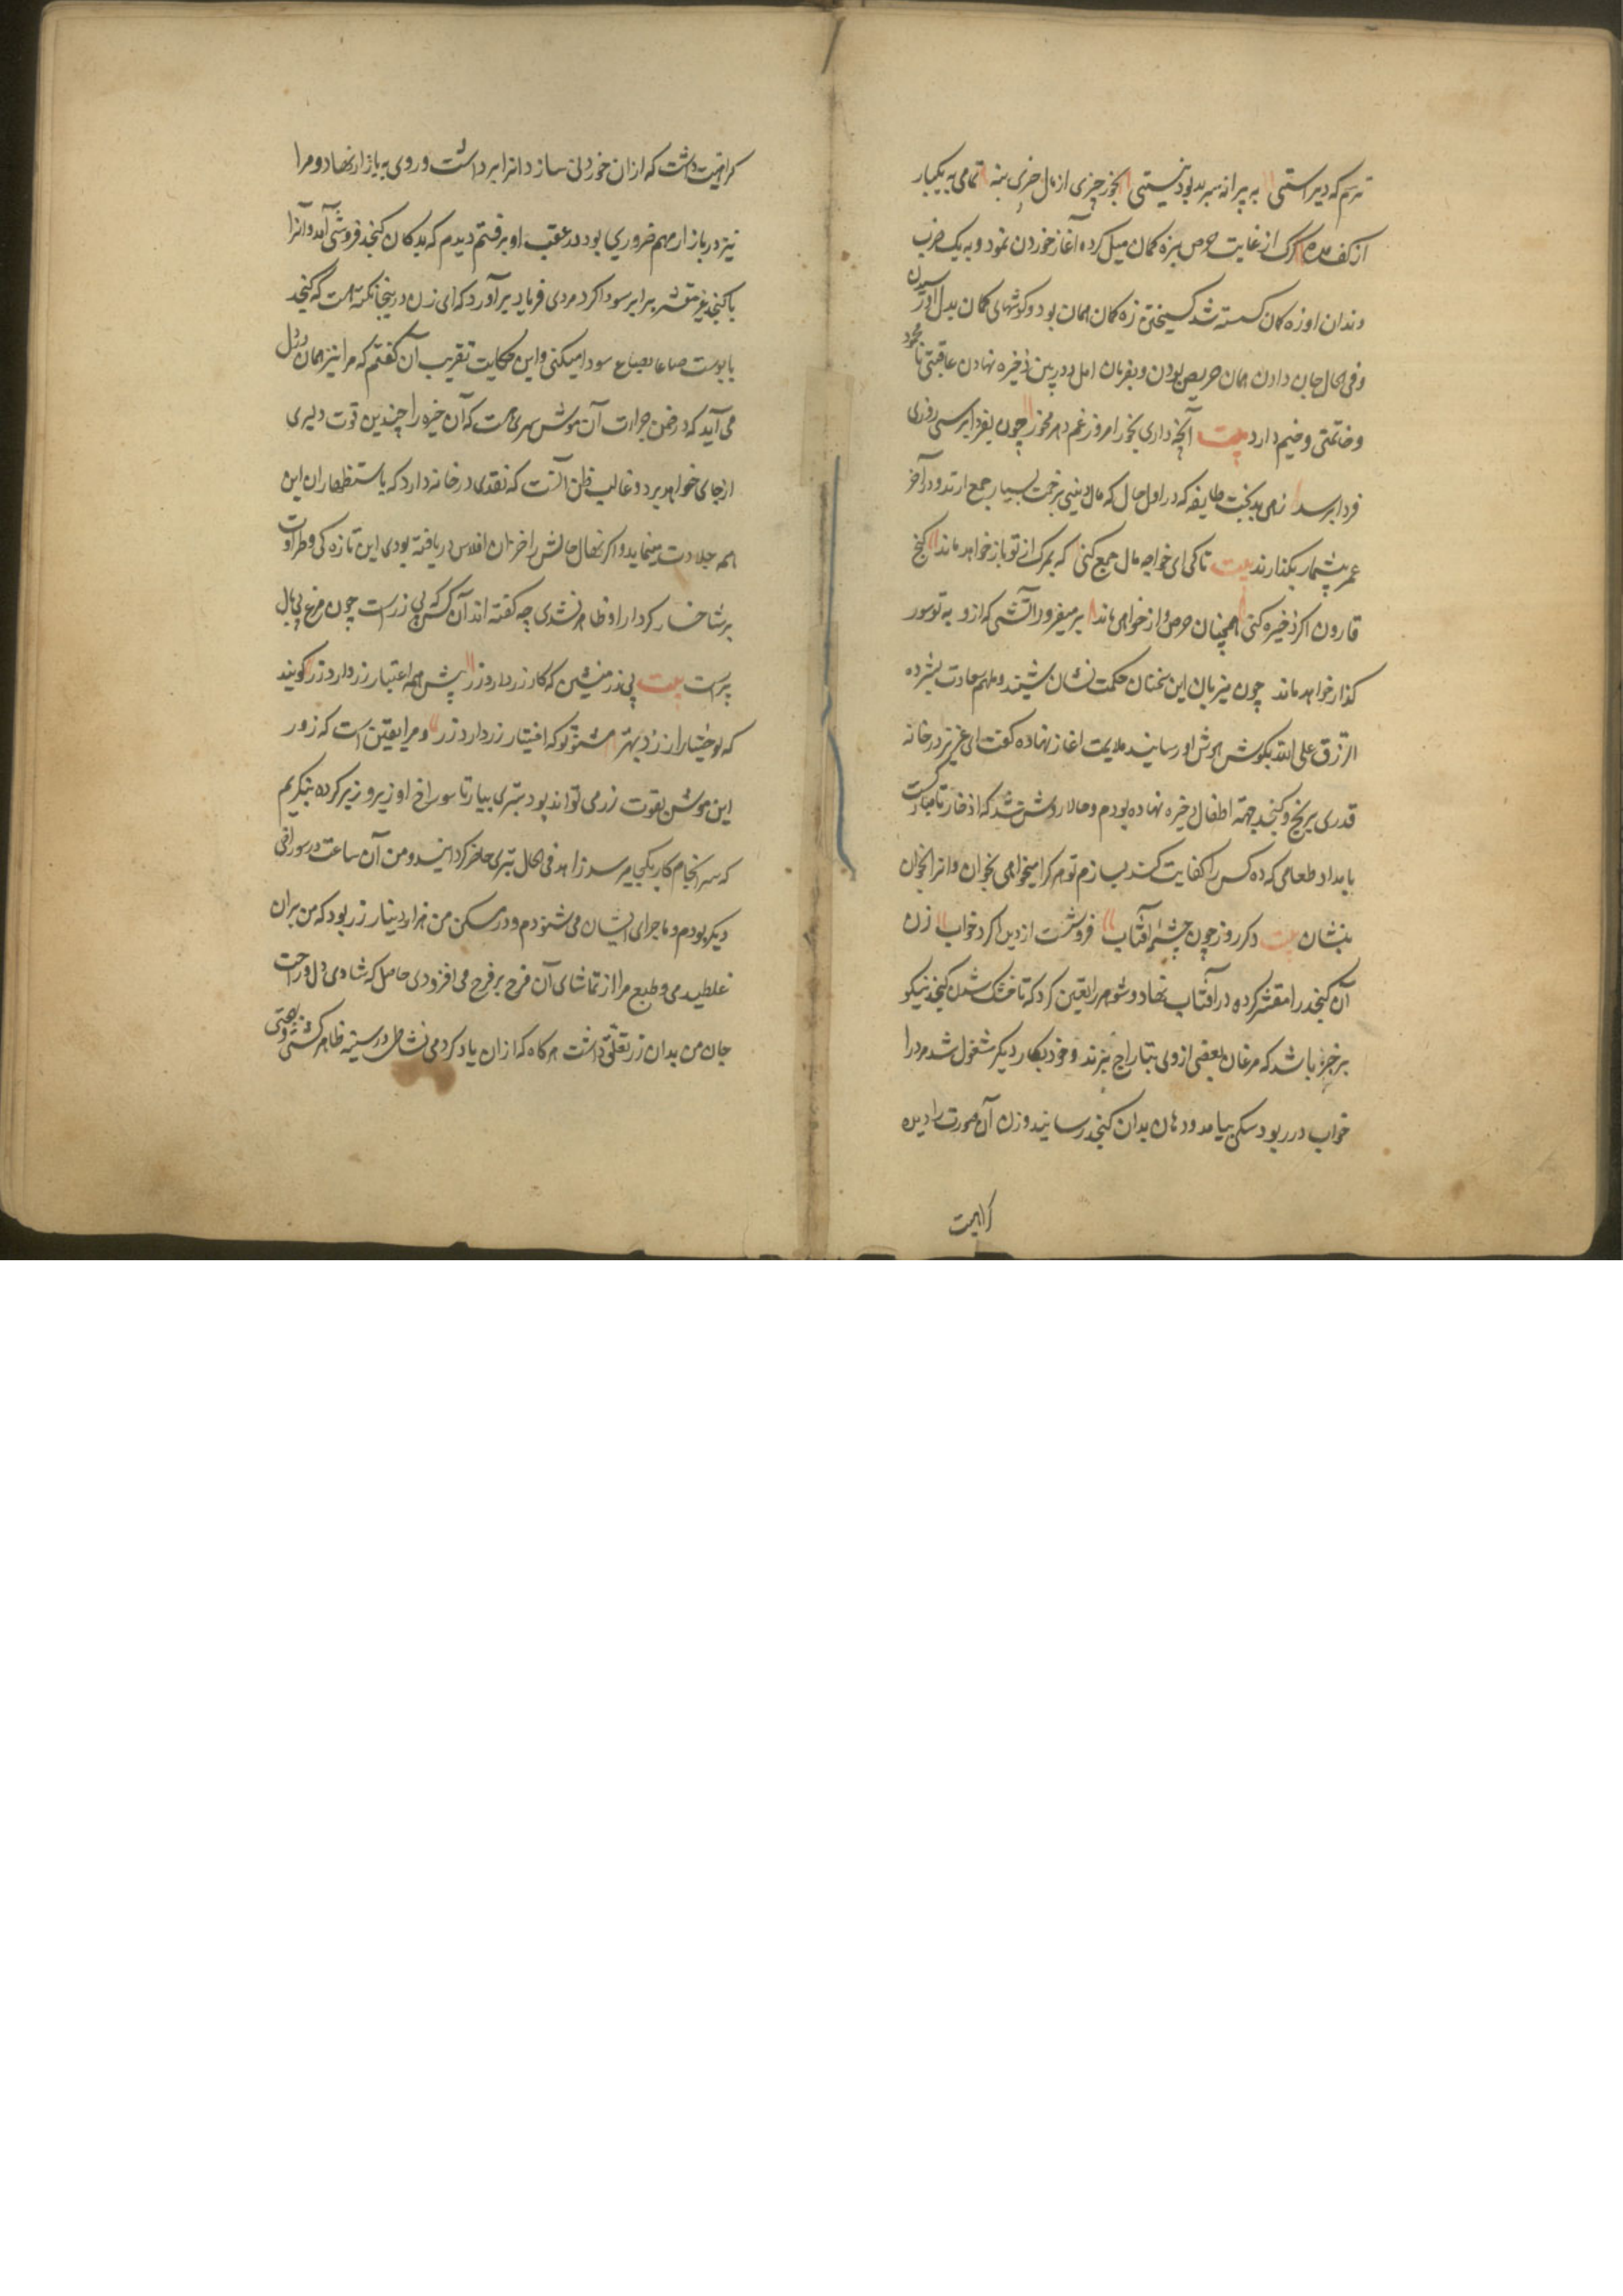 ترسم که دیر استی به پیرانه سر بد بود نیستی بخور چیزی از مال چیزی بنه تمامی به یکبار
از کف مده گرگ از غایت حرص بزه کمان میل کرده آغاز خوردن نمود و به یک ضرب
دندان او زه کمان گسسته شد گسیختن زه کمان همان بود و گوشهای کمان بدل او رسیدن
و فی الحال جان دادن همان حریص بودن و بفرمان امل ذخیره نهادن عاقبتی نامحمود
و خاتمتی وخیم دارد بیت آنچه داری بخور امروز غم دهر مخور چون بفردا برسی روزی
فردا برسد زهی بدبخت طایفه که در اول حال که مال بینی برخت بسیار جمع ارند و در آخر
عمر بیشمار بگذارند بیت تا کی ای خواجه مال جمع کنی که بمرگ از تو باز خواهد ماند گنج
قارون اگر ذخیره کنی همچنان حرص و از خواهی ماند بر میفروز آتشی که ازو به تو سوز
گداز خواهد ماند چون میزبان این سخنان حکمت نشان شنید و ملهم سعادت بشرده
الرزق علی الله بگوش هوش او رسانید ملایمت اغاز نهاده گفت ای عزیز در خانه
قدری برنج و کنجد جهة اطفال ذخیره نهاده بودم و حالا روشن شد که ادخار نامبارکست
بامداد طعامی که ده کس را کفایت کند بسازم تو هر کرا میخواهی بخوان و انرا بخوان
بنشان بیت دگر روز چون چشمه آفتاب فروشست از دیده گرد خواب زن
آن کنجد را مقشر کرده در آفتاب نهاد و شوهر را تعین کرد که تا خشک شدن کنجد نیکو
بر خبر باشد که مرغان بعضی ازوی بتاراج نبرند و خود بکار دیگر مشغول شد مرد را
خواب در ربود سکی بیامد و دهان بدان کنجد رسانید و زن آن صورت را دیده
کراهیت
کراهیت داشت که ازان خوردنی سازد انرا برداشت و روی به بازار نهاد و مرا
نیز در بازار مهم ضروری بود در عقب او برفتم دیدم که بدکان کنجد فروشی آمد و آنرا
با کنجد غیر مقشر برابر سودا کرد مردی فریاد برآورد که ای زن درینجا نکته هست که کنجد
با پوست صاعا بصاع سودا میکنی و این حکایت تقریب آن گفتم که مرا نیز همان در دل
می آید که در ضمن جرات آن موش سری هست که آن خیره را چندین قوت دلیری
از جای خواهد برد و غالب ظن آنست که نقدی در خانه دارد که باستظهاران این
همه جلادت مینماید و اگر نهال حالش را خزان افلاس دریافته بودی این تازه کی و طراوت
بر شاخسار کردار او ظاهر نشدی چه گفته اند آن کس که بی زرست چون مرغ بی بال
پرست بیت بی زر منشین که کار زر دارد زر پیش همه اعتبار زر دارد زر گویند
که اختیار از زر بهتر مشنو تو که اختیار زر دارد زر و مرا یقین است که زور
این موش بقوت زر می تواند بود تبری بیار تا سوراخ او زیر و زبر کرده بنگریم
که سرانجام کار بکجا میرسد زاهد فی الحال تبری حاضر گردانید و من آن ساعت در سوراخی
دیگر بودم و ماجرای ایشان می شنودم و در مسکن من هزار دینار زر بود که من بران
غلطیدمی و طبع مرا از تماشای آن فرح بر فرح می افزودی حاصل که شادی دل و راحت
جان من بدان زر تعلق داشت هر گاه که ازان یاد کردمی نشاط در سینه ظاهر گشتی و بهجتی